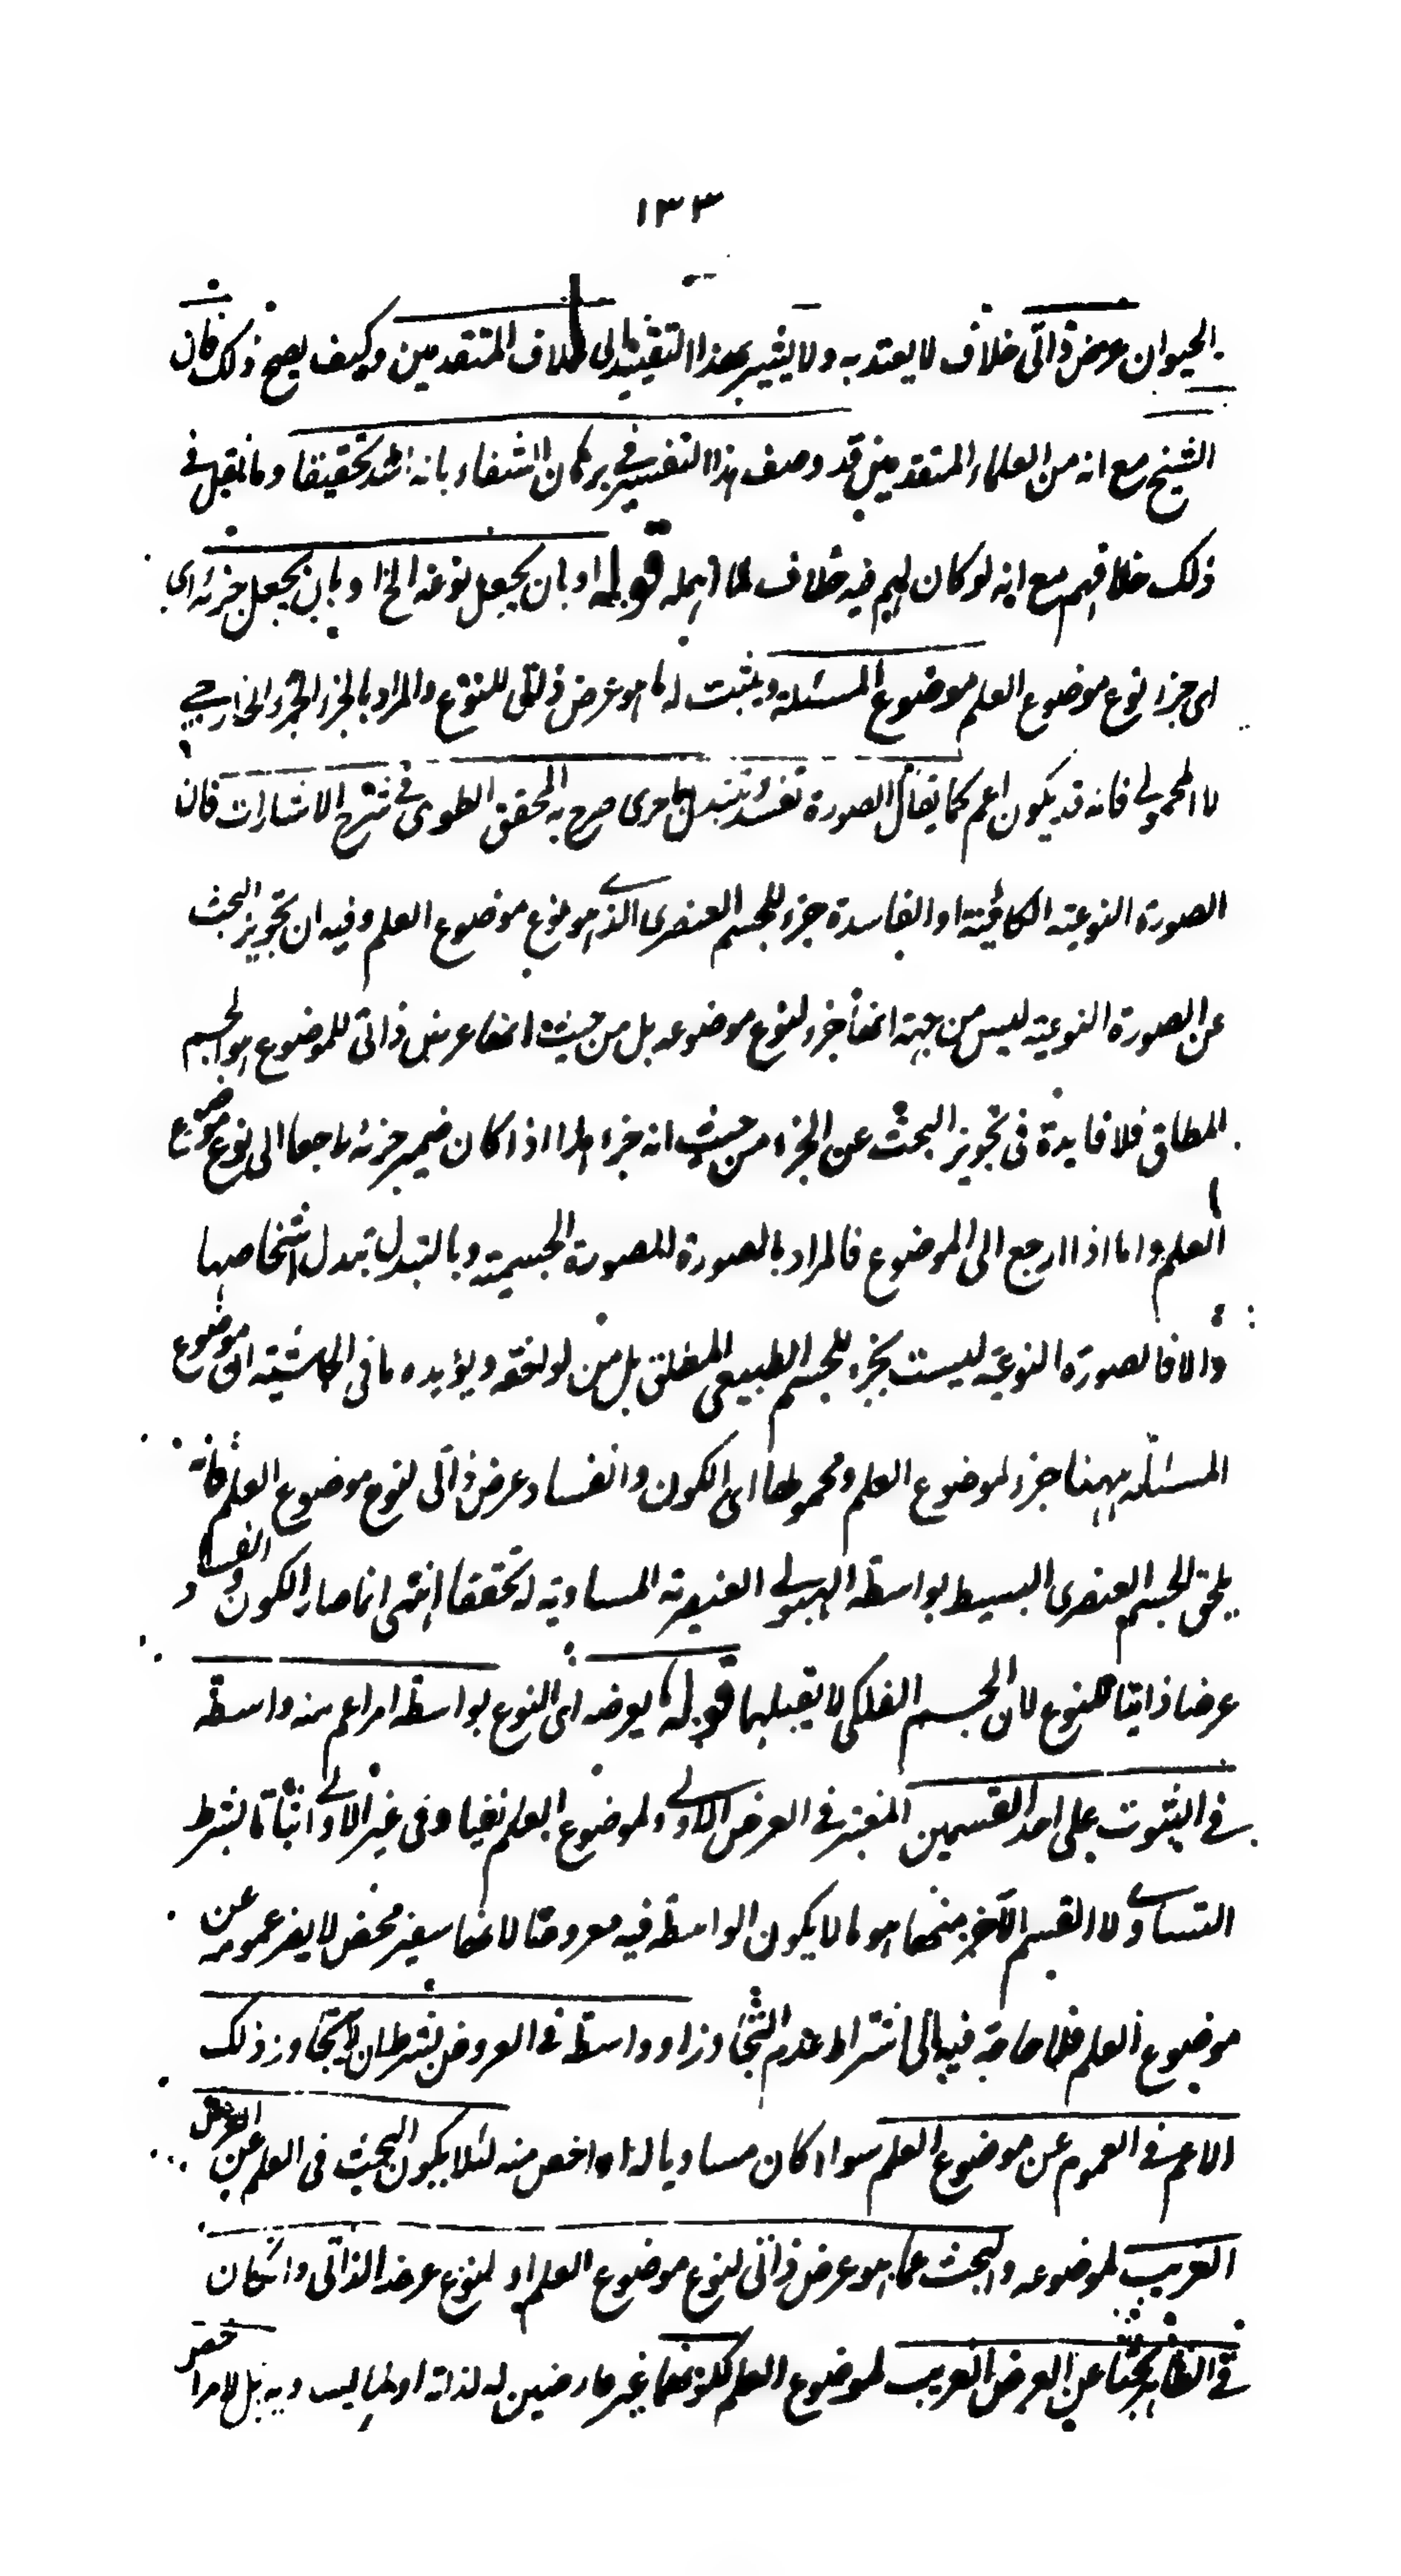 ١٣٣
الحيوان عرض ذاتى خلاف لا يعتد به ولا يشير بهذا التقييد الى خلاف المتقدمين وكيف يصح ذلك فان
الشيخ مع انه من العلماء المتقدمين قد وصف هذا التفسير فى برهان الشفاء بانه اشد تحقيقا وما نقل فى
ذلك خلافهم مع انه لو كان لهم فيه خلاف لما اهمله قوله او بان يجعل نوعه الخ او بان يجعل جزئه اى
اى جزء نوع موضوع العلم موضوع المسئلة ويثبت له ما هو عرض ذاتى للنوع والمراد بالجزء الجزء الخارجى
لا المحمولى فانه قد يكون اعم كما يقال الصورة تفسد وتتبدل باخرى صرح به المحقق الطوسى فى شرح الاشارات فان
الصورة النوعية الكائنة او الفاسدة جزء للجسم العنصرى الذى هو نوع موضوع العلم وفيه ان تجويز البحث
عن الصورة النوعية ليس من جهة انها جزء لنوع موضوعه بل من حيث انها عرض ذاتى للموضوع هو الجسم
المطلق فلا فايدة فى تجويز البحث عن الجزء من حيث انه جزء هذا اذا كان ضمير جزئه راجعا الى نوع موضوع
العلم واما اذا ارجع الى الموضوع فالمراد بالصورة الصورة الجسمية وبالتبدل تبدل اشخاصها
والا فالصورة النوعية ليست بجزء للجسم الطبيعى المطلق بل من لواحقه ويؤيده ما فى الحاشية ان موضوع
المسئلة ههنا جزء لموضوع العلم ومحمولها اى الكون والفساد عرض ذاتى لنوع موضوع العلم فانه
يلحق الجسم العنصرى البسيط بواسطة الهيولى العنصرية المساوية له تحققا انتهى انما صار الكون والفساد
عرضا ذاتيا للنوع لان الجسم الفلكى لا يقبلهما قوله ما يعرضه اى النوع بواسطة امر اعم منه واسطة
فى الثبوت على احد القسمين المعتبر فى العرض الاولى ولموضوع العلم نفيا وفى غير الاولى اثباتا بشرط
التساوى لا القسم الآخر منها هو ما لا يكون الواسطة فيه معروضا لانها سفير محض لا يضر عمومه عن
موضوع العلم فلا حاجة فيها الى اشتراط عدم التجاوز او واسطة فى العروض بشرط ان لا يتجاوز ذلك
الاعم فى العموم عن موضوع العلم سواء كان مساويا له او اخص منه لئلا يكون البحث فى العلم عن العرض
الغريب لموضوعه والبحث عما هو عرض ذاتى لنوع موضوع العلم او لنوع عرضه الذاتى وان كان
فى الظاهر بحثا عن العرض الغريب لموضوع العلم لكونهما غير عارضين له لذاته او لما يساويه بل لامر اخص